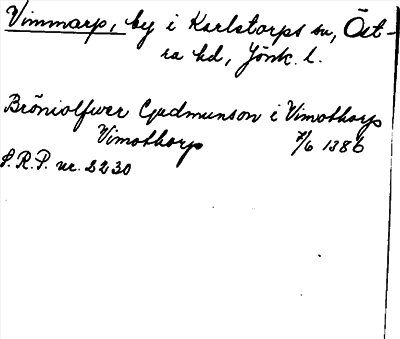 Vimmarp, by i Karlstorps sn, Öst-
ra hd, Jönk. l.
Bröniolfwer Gudmunson i Vimothorp
Vimothorp 7/6 1386
S.R.P. nr. 2230